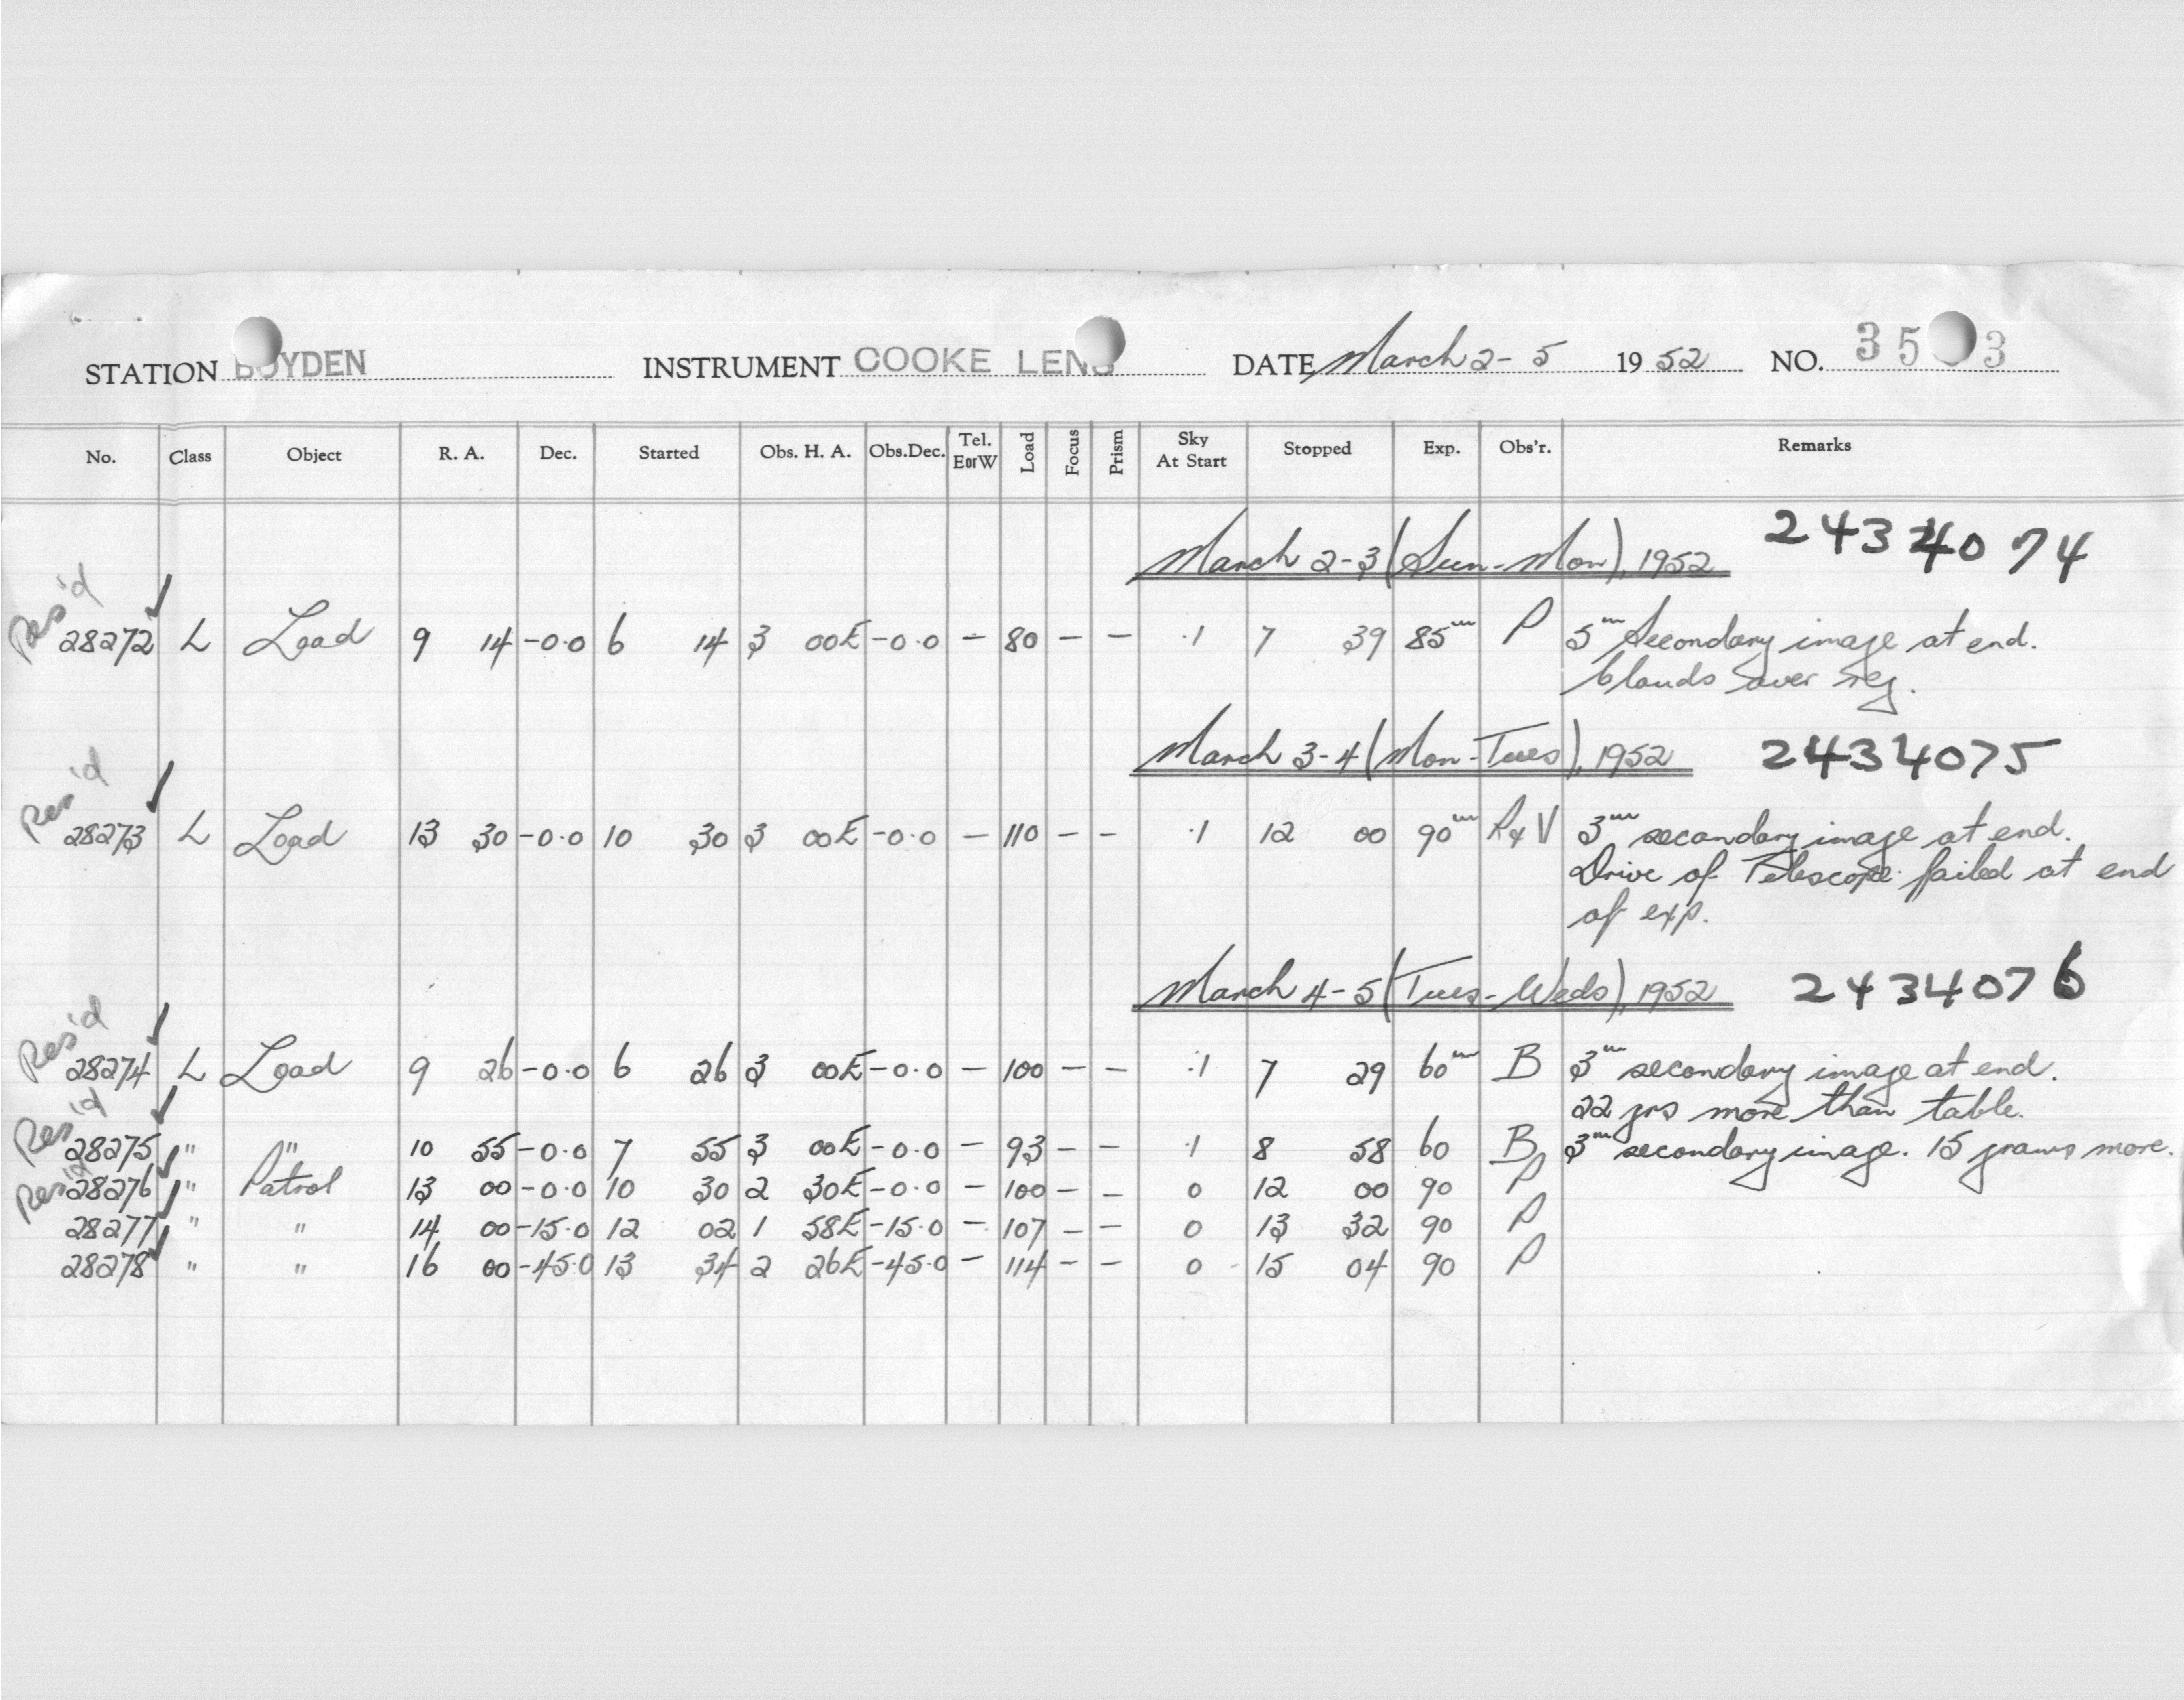 STATION BOYDEN INSTRUMENT COOKE LENS DATE March 2-5 1952 NO. 35 3
No. Class Object R. A. Dec. Started Obs. H. A. Obs.Dec. Tel. EorW Load Focus Prism Sky At Start Stopped Exp. Obs'r. Remarks
March 2-3 (Sun-Mon), 1952 2434074
Res'd
28272 ✓ L Load 9 14 -0.0 6 14 3 00E -0.0 - 80 - - .1 7 39 85m P 5m Secondary image at end.
Clouds over reg.
March 3-4 (Mon-Tues), 1952 2434075
Res'd
28273 ✓ L Load 13 30 -0.0 10 30 3 00E -0.0 - 110 - - .1 12 00 90m P & V 3m secondary image at end.
Drive of Telescope failed at end
of exp.
March 4-5 (Tues-Weds), 1952 2434076
Res'd
28274 ✓ L Load 9 26 -0.0 6 26 3 00E -0.0 - 100 - - .1 7 29 60m B 3m secondary image at end.
22 grs more than table.
Res'd
28275 ✓ " " 10 55 -0.0 7 55 3 00E -0.0 - 93 - - .1 8 58 60 B 3m secondary image. 15 grams more.
Res'd
28276 ✓ " Patrol 13 00 -0.0 10 30 2 30E -0.0 - 100 - - 0 12 00 90 P
28277 ✓ " " 14 00 -15.0 12 02 1 58E -15.0 - 107 - - 0 13 32 90 P
28278 ✓ " " 16 00 -45.0 13 34 2 26E -45.0 - 114 - - 0 15 04 90 P